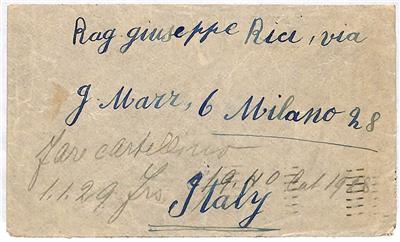 Rag. giuseppe Rici, via
g. Marz, 6 Milano 28
far cartellino
1.1.29
Italy